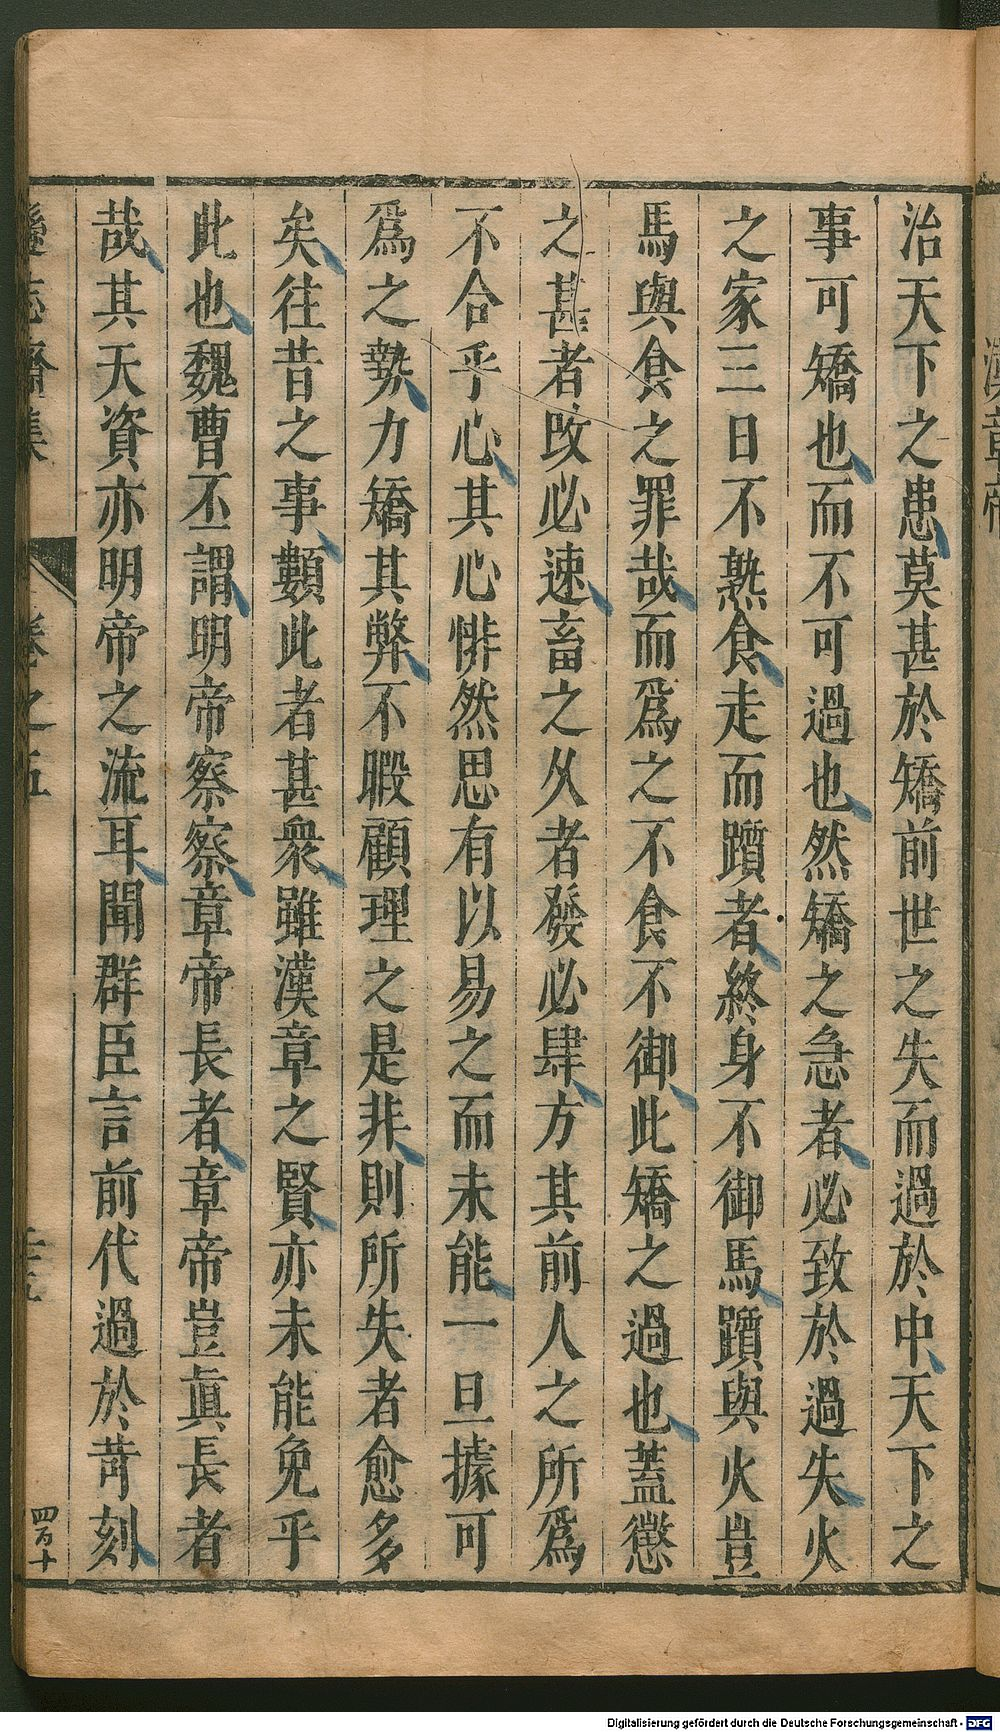 治天下之患莫甚於矯前世之失而過於中天下之
事可矯也而不可過也然矯之急者必致於過失火
之家三日不熟食走而躓者終身不御馬躓與火豈
馬與食之罪哉而爲之不食不御此矯之過也蓋懲
之甚者攺必速畜之久者發必肆方其前人之所爲
不合乎心其心悱然思有以易之而未能一旦據可
爲之勢力矯其弊不暇顧理之是非則所失者愈多
矣往昔之事類此者甚衆雖漢章之賢亦未能免乎
此也魏曹丕謂明帝察察章帝長者章帝豈眞長者
哉其天資亦明帝之流耳聞群臣言前代過於苛刻
遜志齋集 卷之五 二十五
四百十
漢章帝
Digitalisierung gefördert durch die Deutsche Forschungsgemeinschaft - DFG